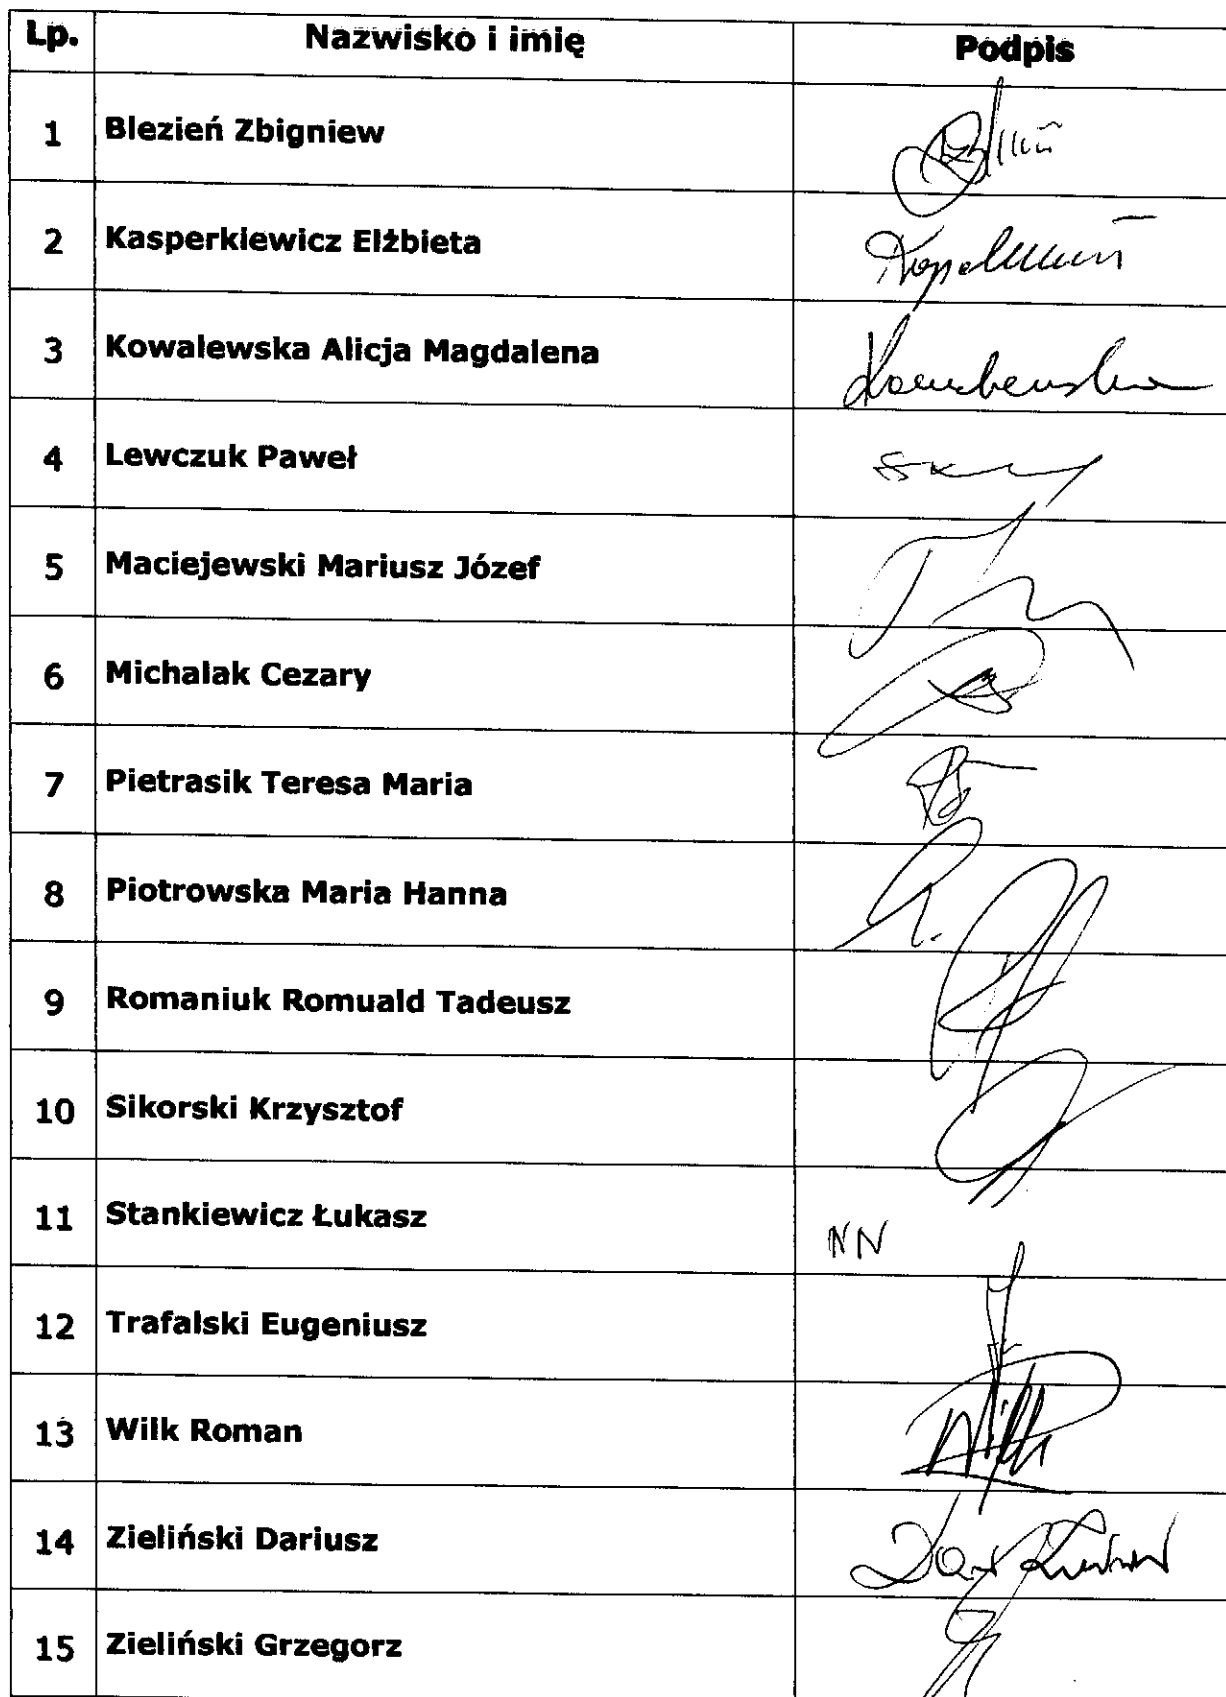 Lp. Nazwisko i imię Podpis
1 Blezień Zbigniew
2 Kasperkiewicz Elżbieta
3 Kowalewska Alicja Magdalena
4 Lewczuk Paweł
5 Maciejewski Mariusz Józef
6 Michalak Cezary
7 Pietrasik Teresa Maria
8 Piotrowska Maria Hanna
9 Romaniuk Romuald Tadeusz
10 Sikorski Krzysztof
11 Stankiewicz Łukasz NN
12 Trafalski Eugeniusz
13 Wilk Roman
14 Zieliński Dariusz
15 Zieliński Grzegorz